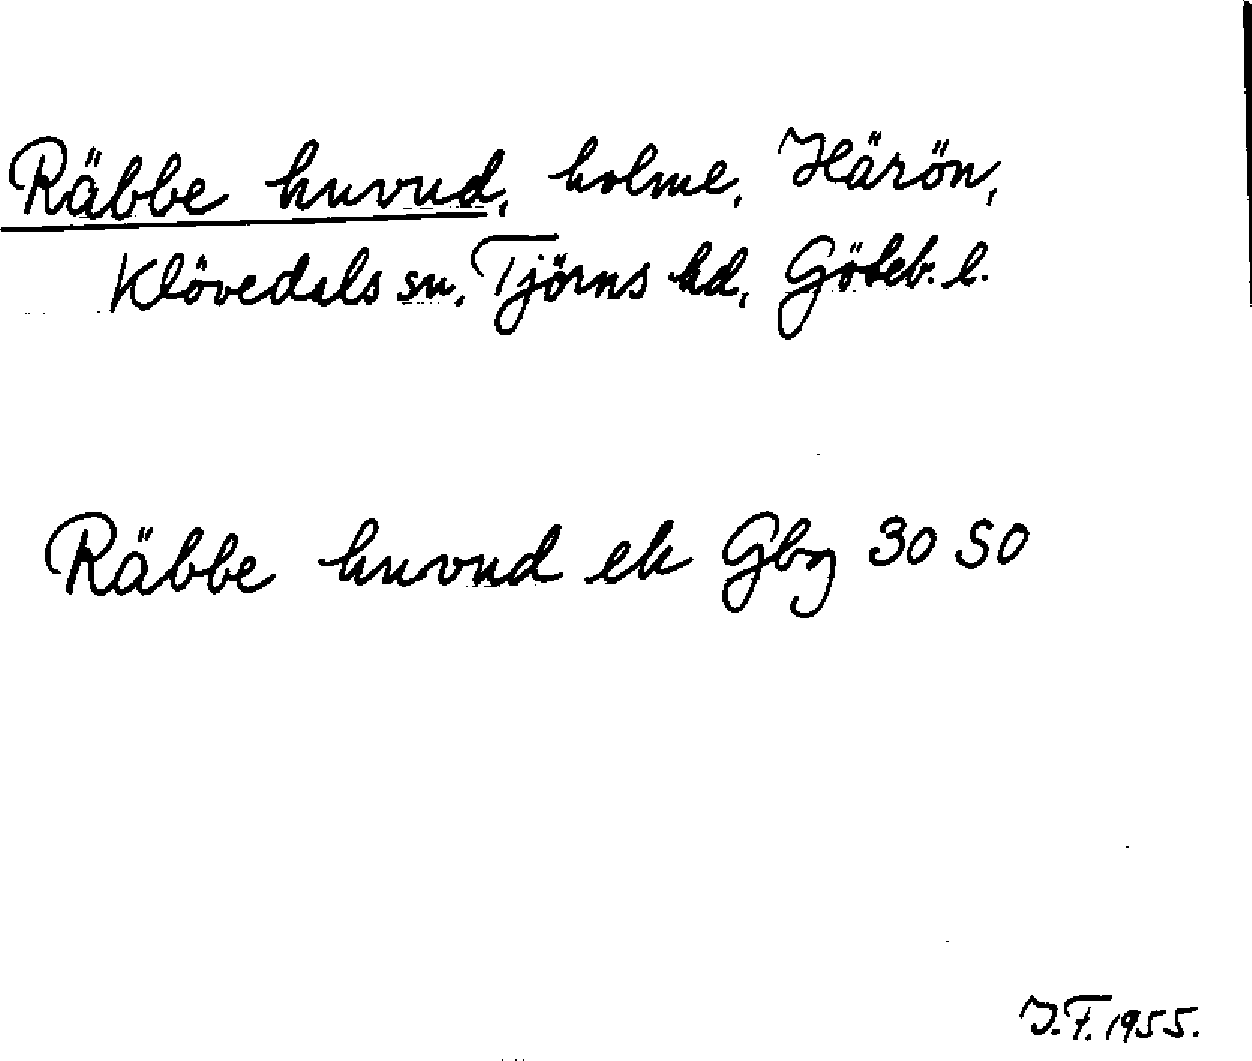 Räbbe huvud, holme, Härön,
Klövedals sn, Tjörns hd, Göteb. l.
Räbbe huvud ek Gbg 30 SO
J.F. 1955.